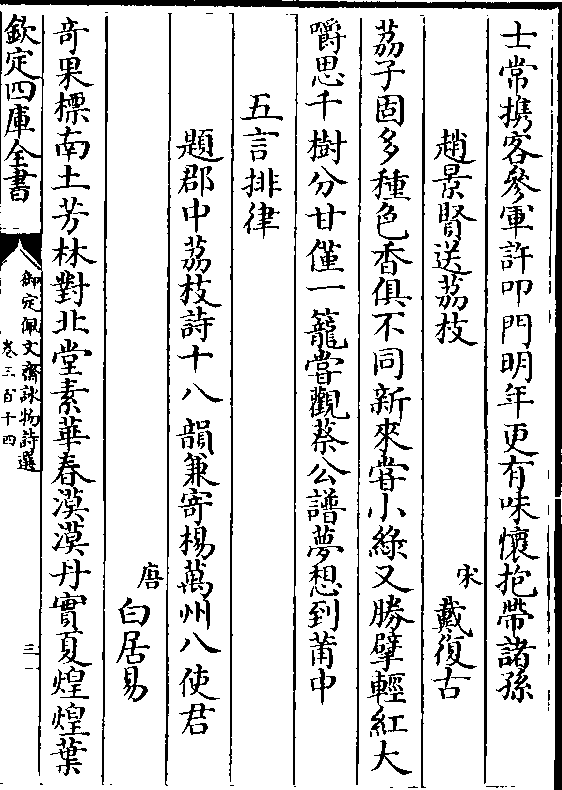 士常携客參軍許叩門明年更有味懷抱帶諸孫
趙景賢送荔枝
宋戴復古
荔子固多種色香俱不同新來嘗小綠又勝擘輕紅大
嚼思千樹分甘僅一籠嘗觀蔡公譜夢想到莆中
五言排律
題郡中荔枝詩十八韻兼寄楊萬州八使君
唐白居易
奇果標南土芳林對北堂素華春漠漠丹實夏煌煌葉
欽定四庫全書
御定佩文齋詠物詩選
卷三百十四
三